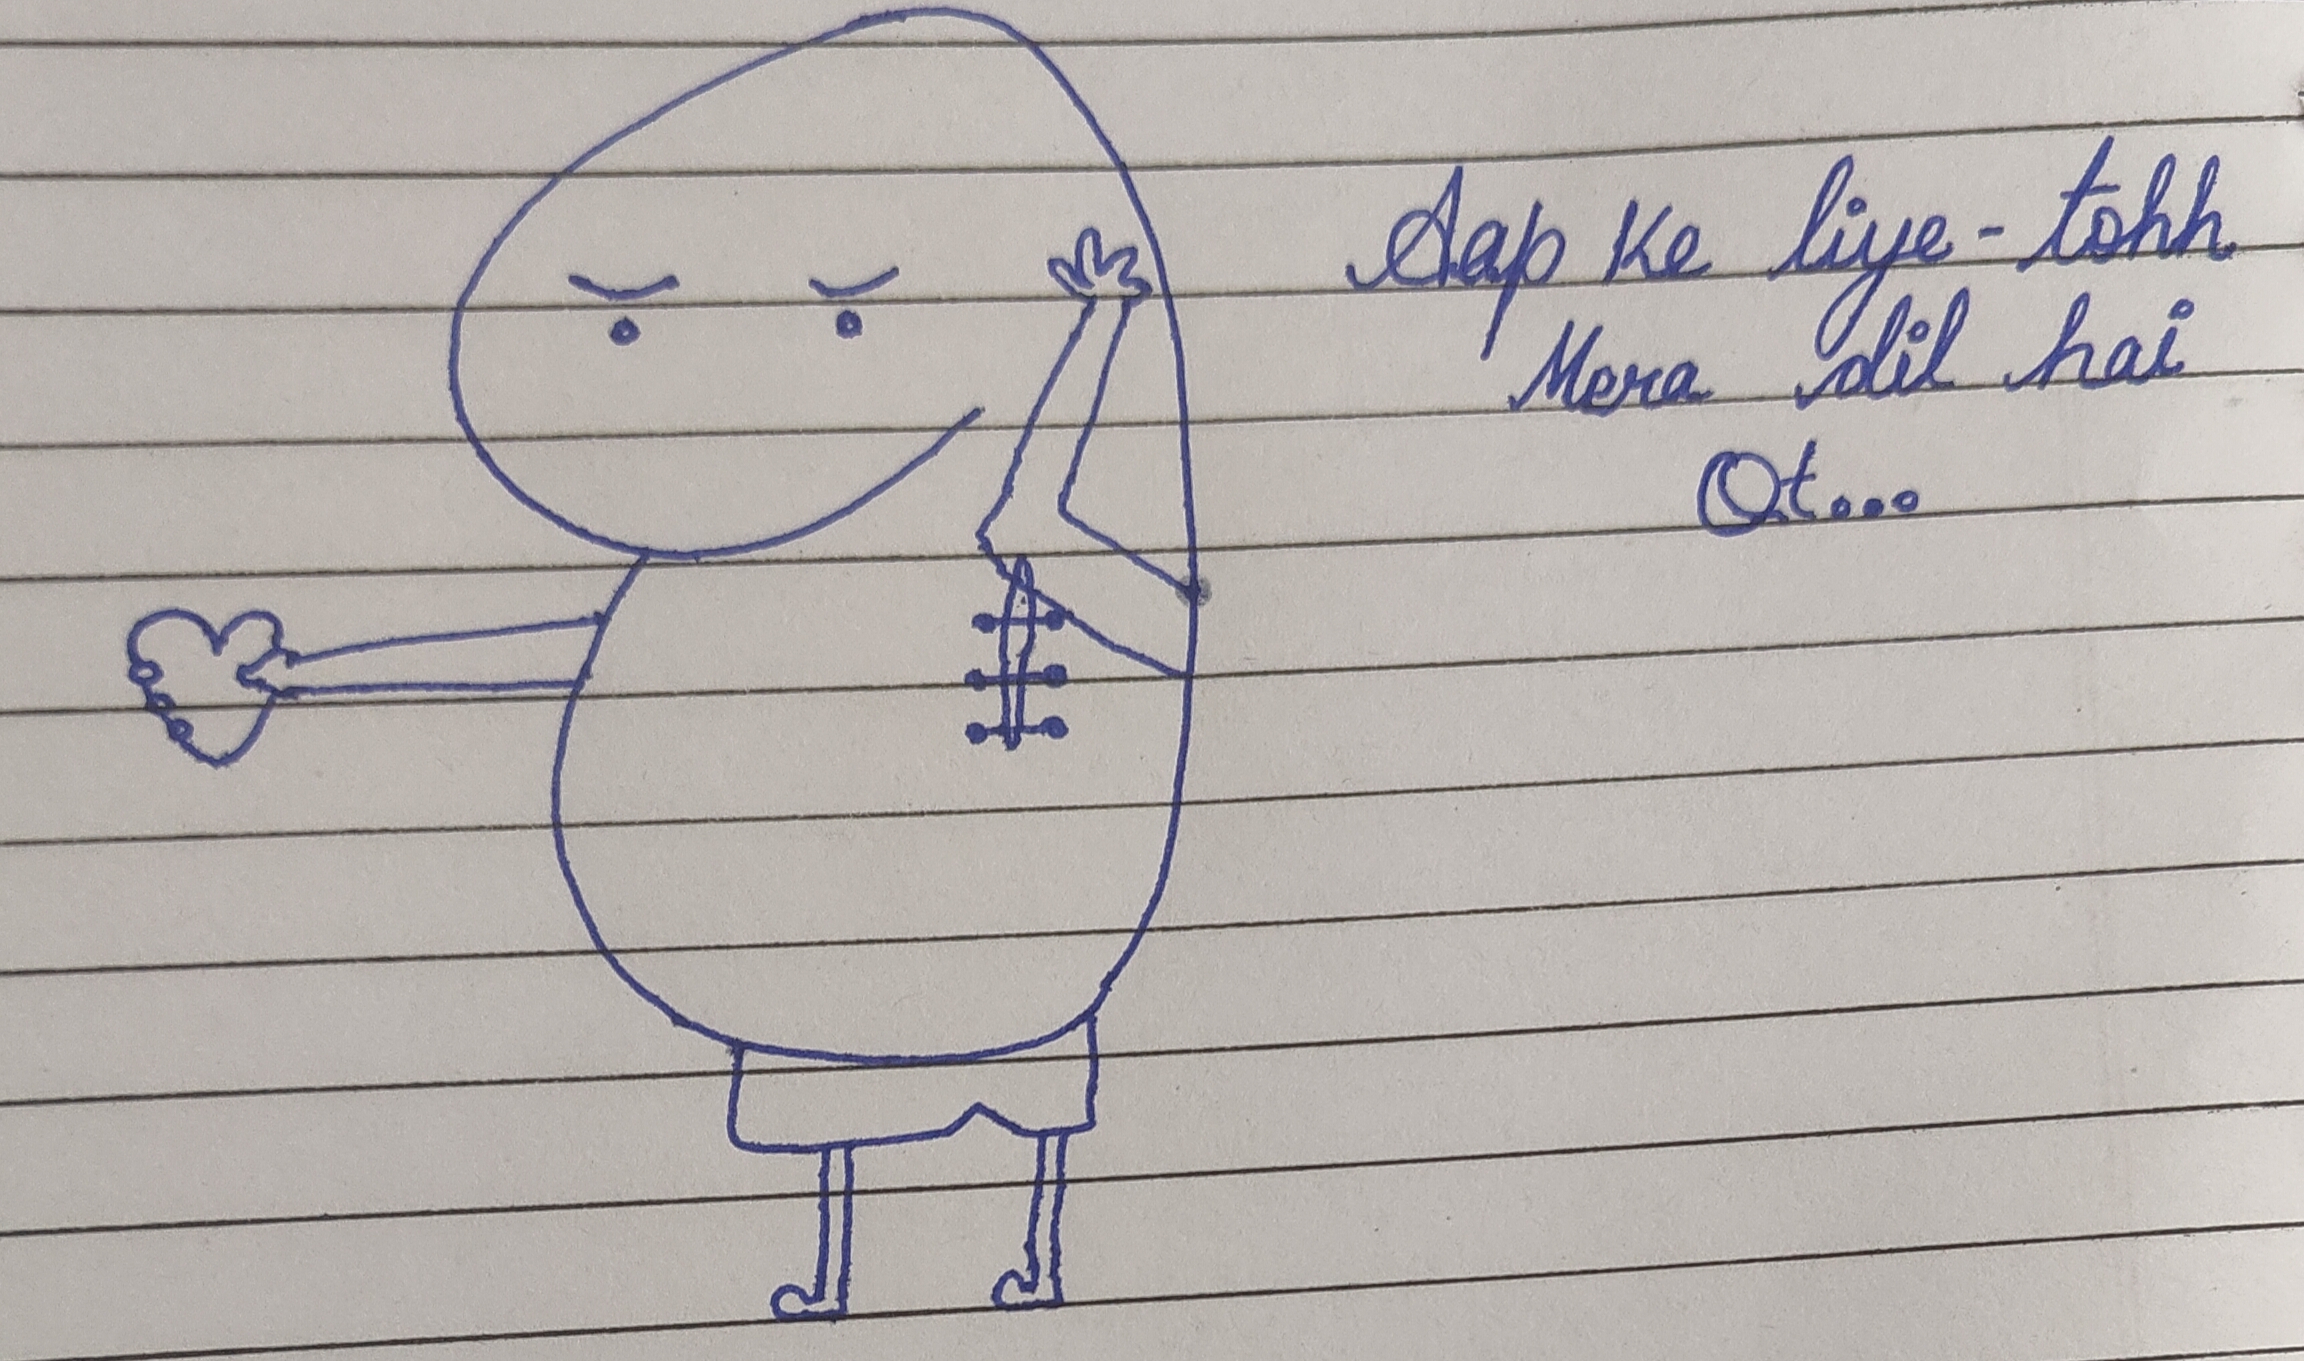 Aap ke liye - tohh
Mera dil hai
Ot...